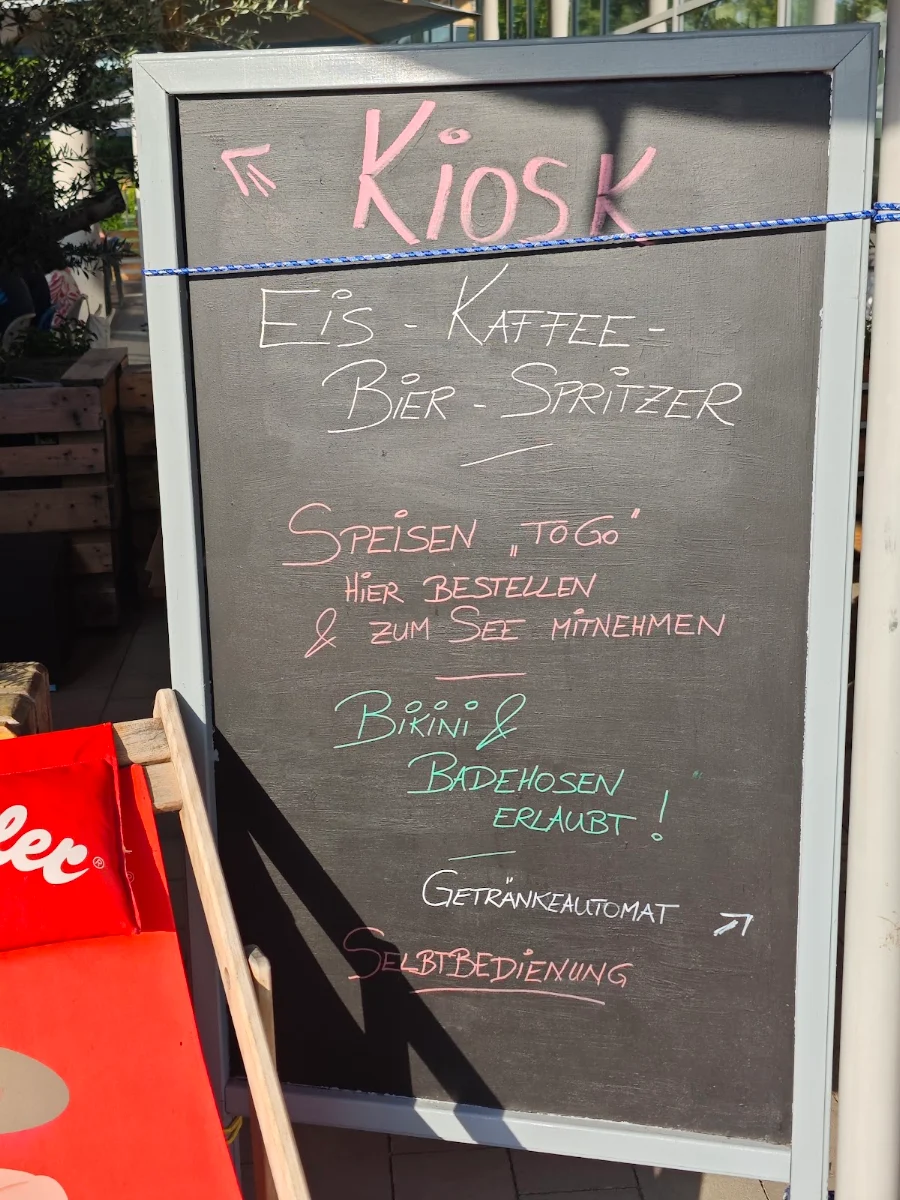 Kiosk
Eis - Kaffee -
Bier - Spritzer
Speisen „to Go"
hier bestellen
& zum See mitnehmen
Bikini &
Badehosen
erlaubt!
Getränkeautomat
Selbtbedienung